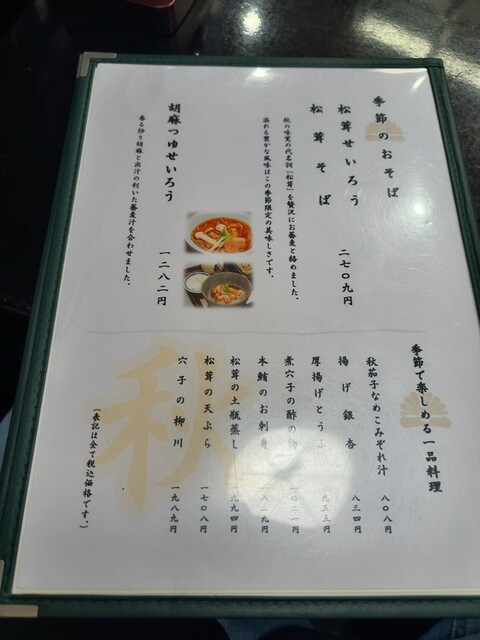 季節のおそば
松茸せいろう
松茸そば
二七〇九円
秋の味覚の代名詞「松茸」を贅沢にお蕎麦と絡めました。
溢れる豊かな風味はこの季節限定の美味しさです。
胡麻つゆせいろう
一二八二円
香る炒り胡麻と出汁の利いた蕎麦汁を合わせました。
季節で楽しめる一品料理
秋茄子なめこみぞれ汁 八〇八円
揚げ銀杏 八三四円
厚揚げとうふ 九三五円
煮穴子の酢の物 一〇二一円
本鮪のお刺身 一八二九円
松茸の土瓶蒸し 一九九四円
松茸の天ぷら 一七〇八円
穴子の柳川 一九八九円
秋
(表記は全て税込価格です。)